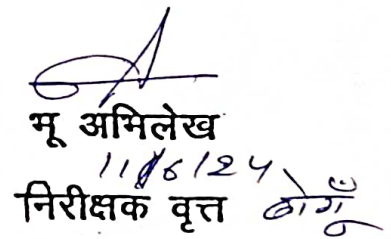 भू अभिलेख
11/6/24
निरीक्षक वृत्त